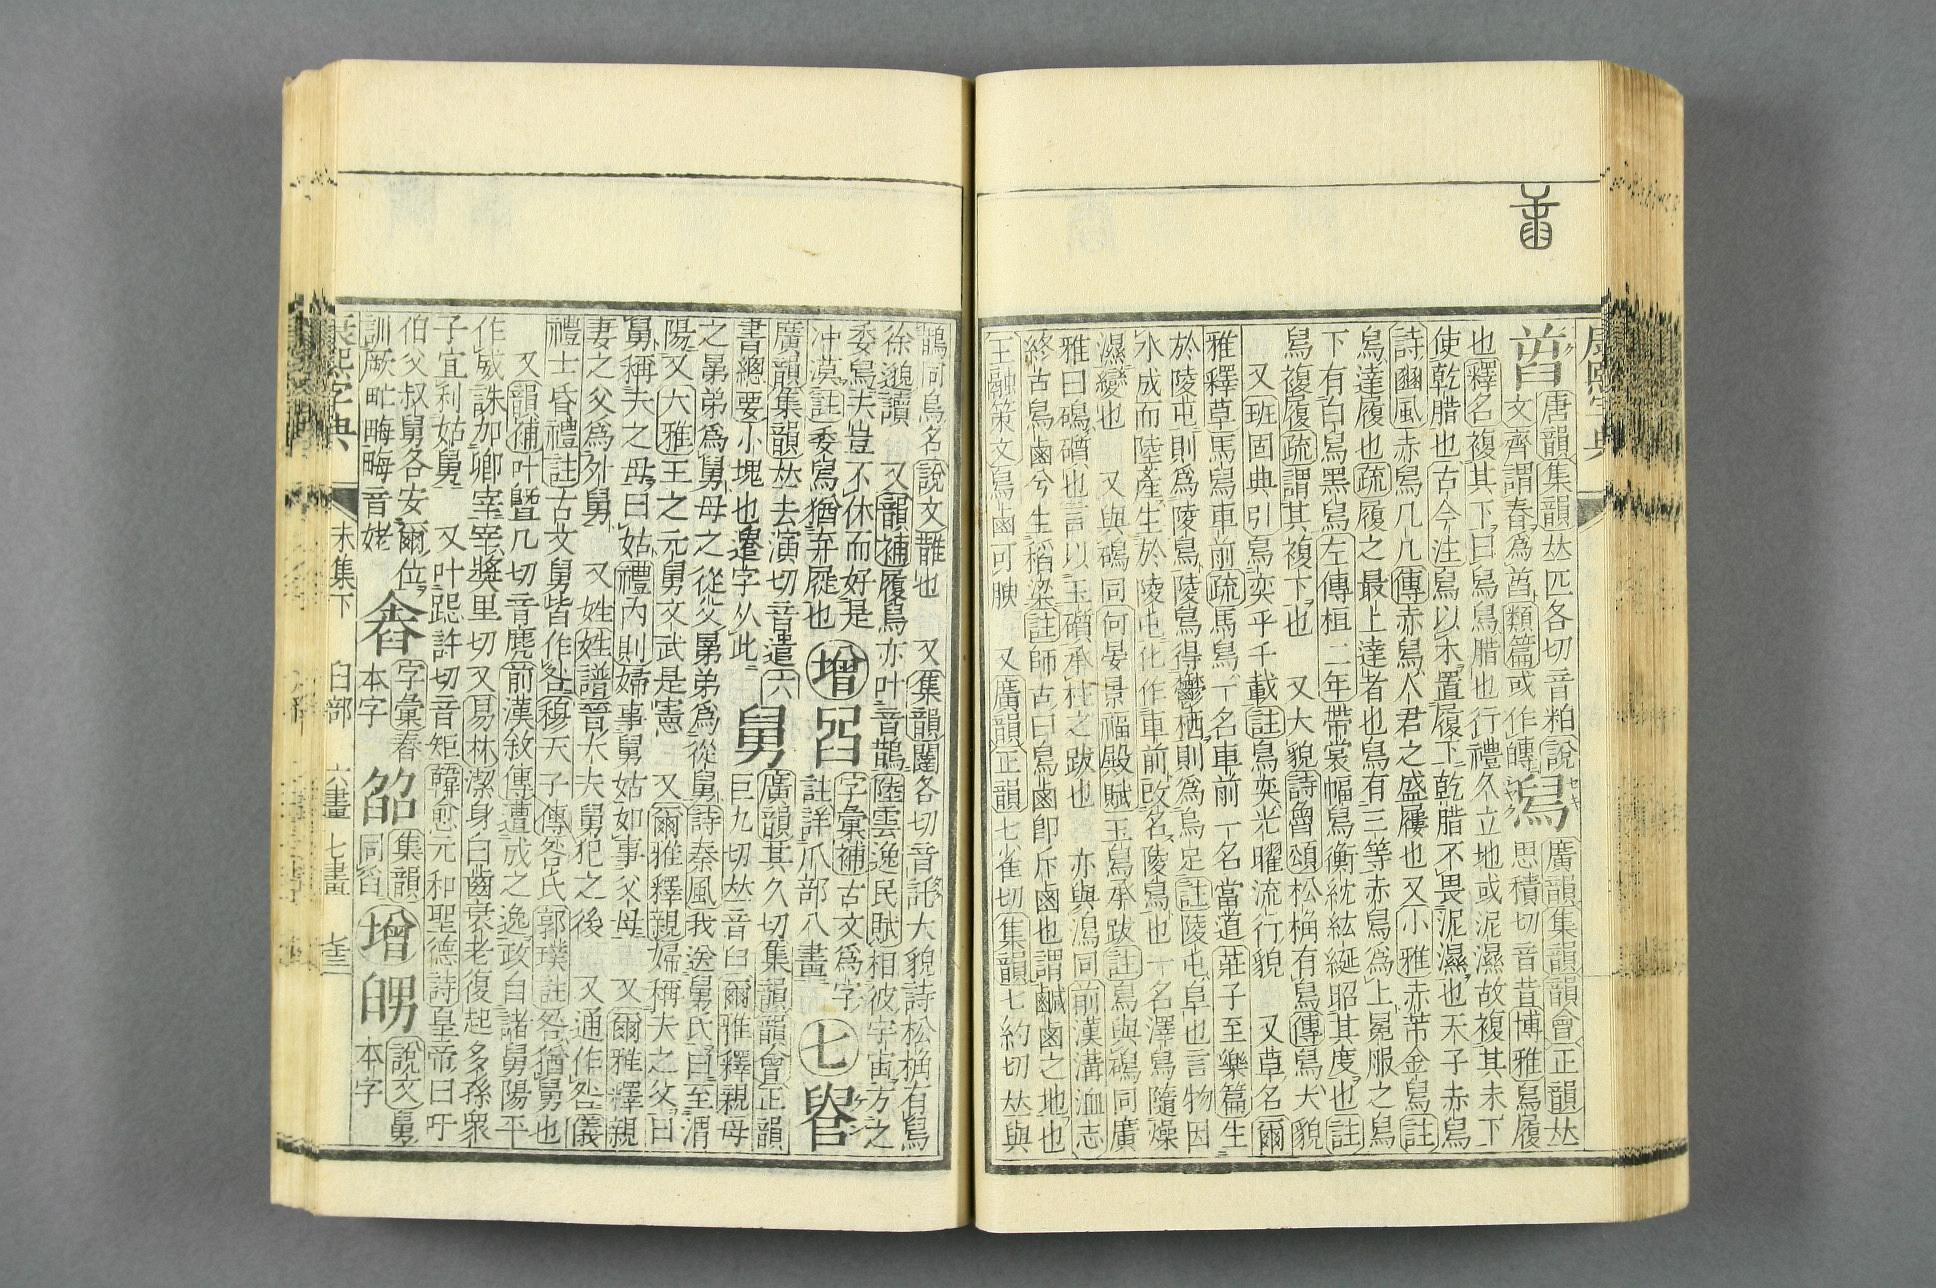 康熙字典
唐韻集韻𠀤匹各切音粕說
文齊謂舂爲䑑類篇或作
舄
廣韻集韻韻會正韻𠀤
思積切音昔博雅舄履
也釋名複其下曰舄舄腊也行禮久立地或泥濕故複其末下
使乾腊也古今注舄以木置履下乾腊不畏泥濕也天子赤舄
詩豳風赤舄几几傳赤舄人君之盛屨也又小雅赤芾金舄註
舄達屨也疏屨之最上達者也舄有三等赤舄爲上冕服之舄
下有白舄黑舄左傳桓二年帶裳幅舄衡紞紘綖昭其度也註
舄複履疏謂其複下也 又大貌詩魯頌松桷有舄傳舄大貌
又班固典引舄奕乎千載註舄奕光曜流行貌 又草名爾
雅釋草馬舄車前疏馬舄一名車前一名當道莊子至樂篇生
於陵屯則爲陵舄陵舄得鬱栖則爲烏足註陵屯阜也言物因
水成而陸產生於陵屯化作車前改名陵舄也一名澤舄隨燥
濕變也 又與磶同何晏景福殿賦玉舄承跋註舄與磶同廣
雅曰磶礩也言以玉礩承柱之跋也 亦與潟同前漢溝洫志
終古舄鹵兮生稻粱註師古曰舄鹵卽斥鹵也謂鹹鹵之地也
王融策文舄鹵可腴 又廣韻正韻七雀切集韻七約切𠀤與
鵲同鳥名說文䧿也 又集韻闥各切音託大貌詩松桷有舄
徐邈讀 又韻補履舄亦叶音鵲陸雲逸民賦相彼宇宙方之
委舄夫豈不休而好是
冲漠註委舄猶弃屣也
增
字彙補古文爲字
註詳爪部八畫
七
廣韻集韻𠀤去演切音遣六
書總要小塊也𨖿字从此
舅
廣韻其久切集韻韻會正韻
巨九切𠀤音臼爾雅釋親母
之晜弟爲舅母之從父晜弟爲從舅詩秦風我送舅氏曰至渭
陽又大雅王之元舅文武是憲 又爾雅釋親婦稱夫之父曰
舅稱夫之母曰姑禮內則婦事舅姑如事父母 又爾雅釋親
妻之父爲外舅 又姓姓譜晉大夫舅犯之後 又通作咎儀
禮士昏禮註古文舅皆作咎穆天子傳咎氏郭璞註咎猶舅也
又韻補叶曁几切音麂前漢敘傳遭成之逸政自諸舅陽平
作威誅加卿宰宰獎里切又易林潔身白齒衰老復起多孫衆
子宜利姑舅 又叶跽許切音矩韓愈元和聖德詩皇帝曰吁
伯父叔舅各安爾位
訓厥甿畮畮音姥
字彙舂
本字
集韻
同
增
說文舅
本字
康熙字典
未集下
臼部
六畫 七畫